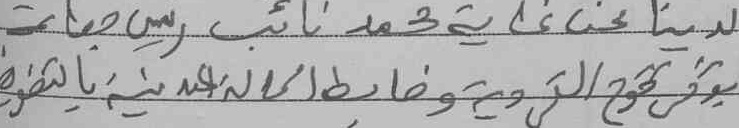 لدينا نحن غاية محمد نائب رئيس جماعة
بوقرقوح القروية وضابط الحالة المدنية بالتفويض